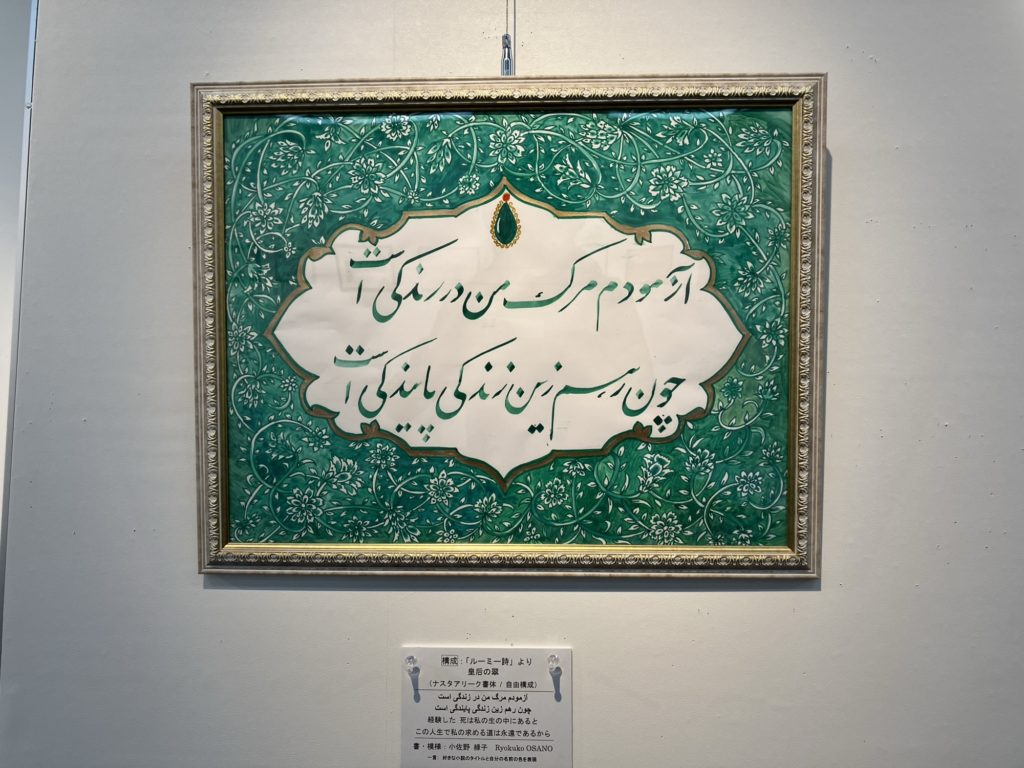 آزمودم مرگ من در زندگی است
چون رهم زین زندگی پایندگی است
構成:「ルーミー詩」より
皇后の翠
(ナスタアリーク書体 / 自由構成)
آزمودم مرگ من در زندگی است
چون رهم زین زندگی پایندگی است
経験した 死は私の生の中にあると
この人生で私の求める道は永遠であるから
書・模様:小佐野 緑子 Ryokuko OSANO
一言: 好きな小説のタイトルと自分の名前の色を表現